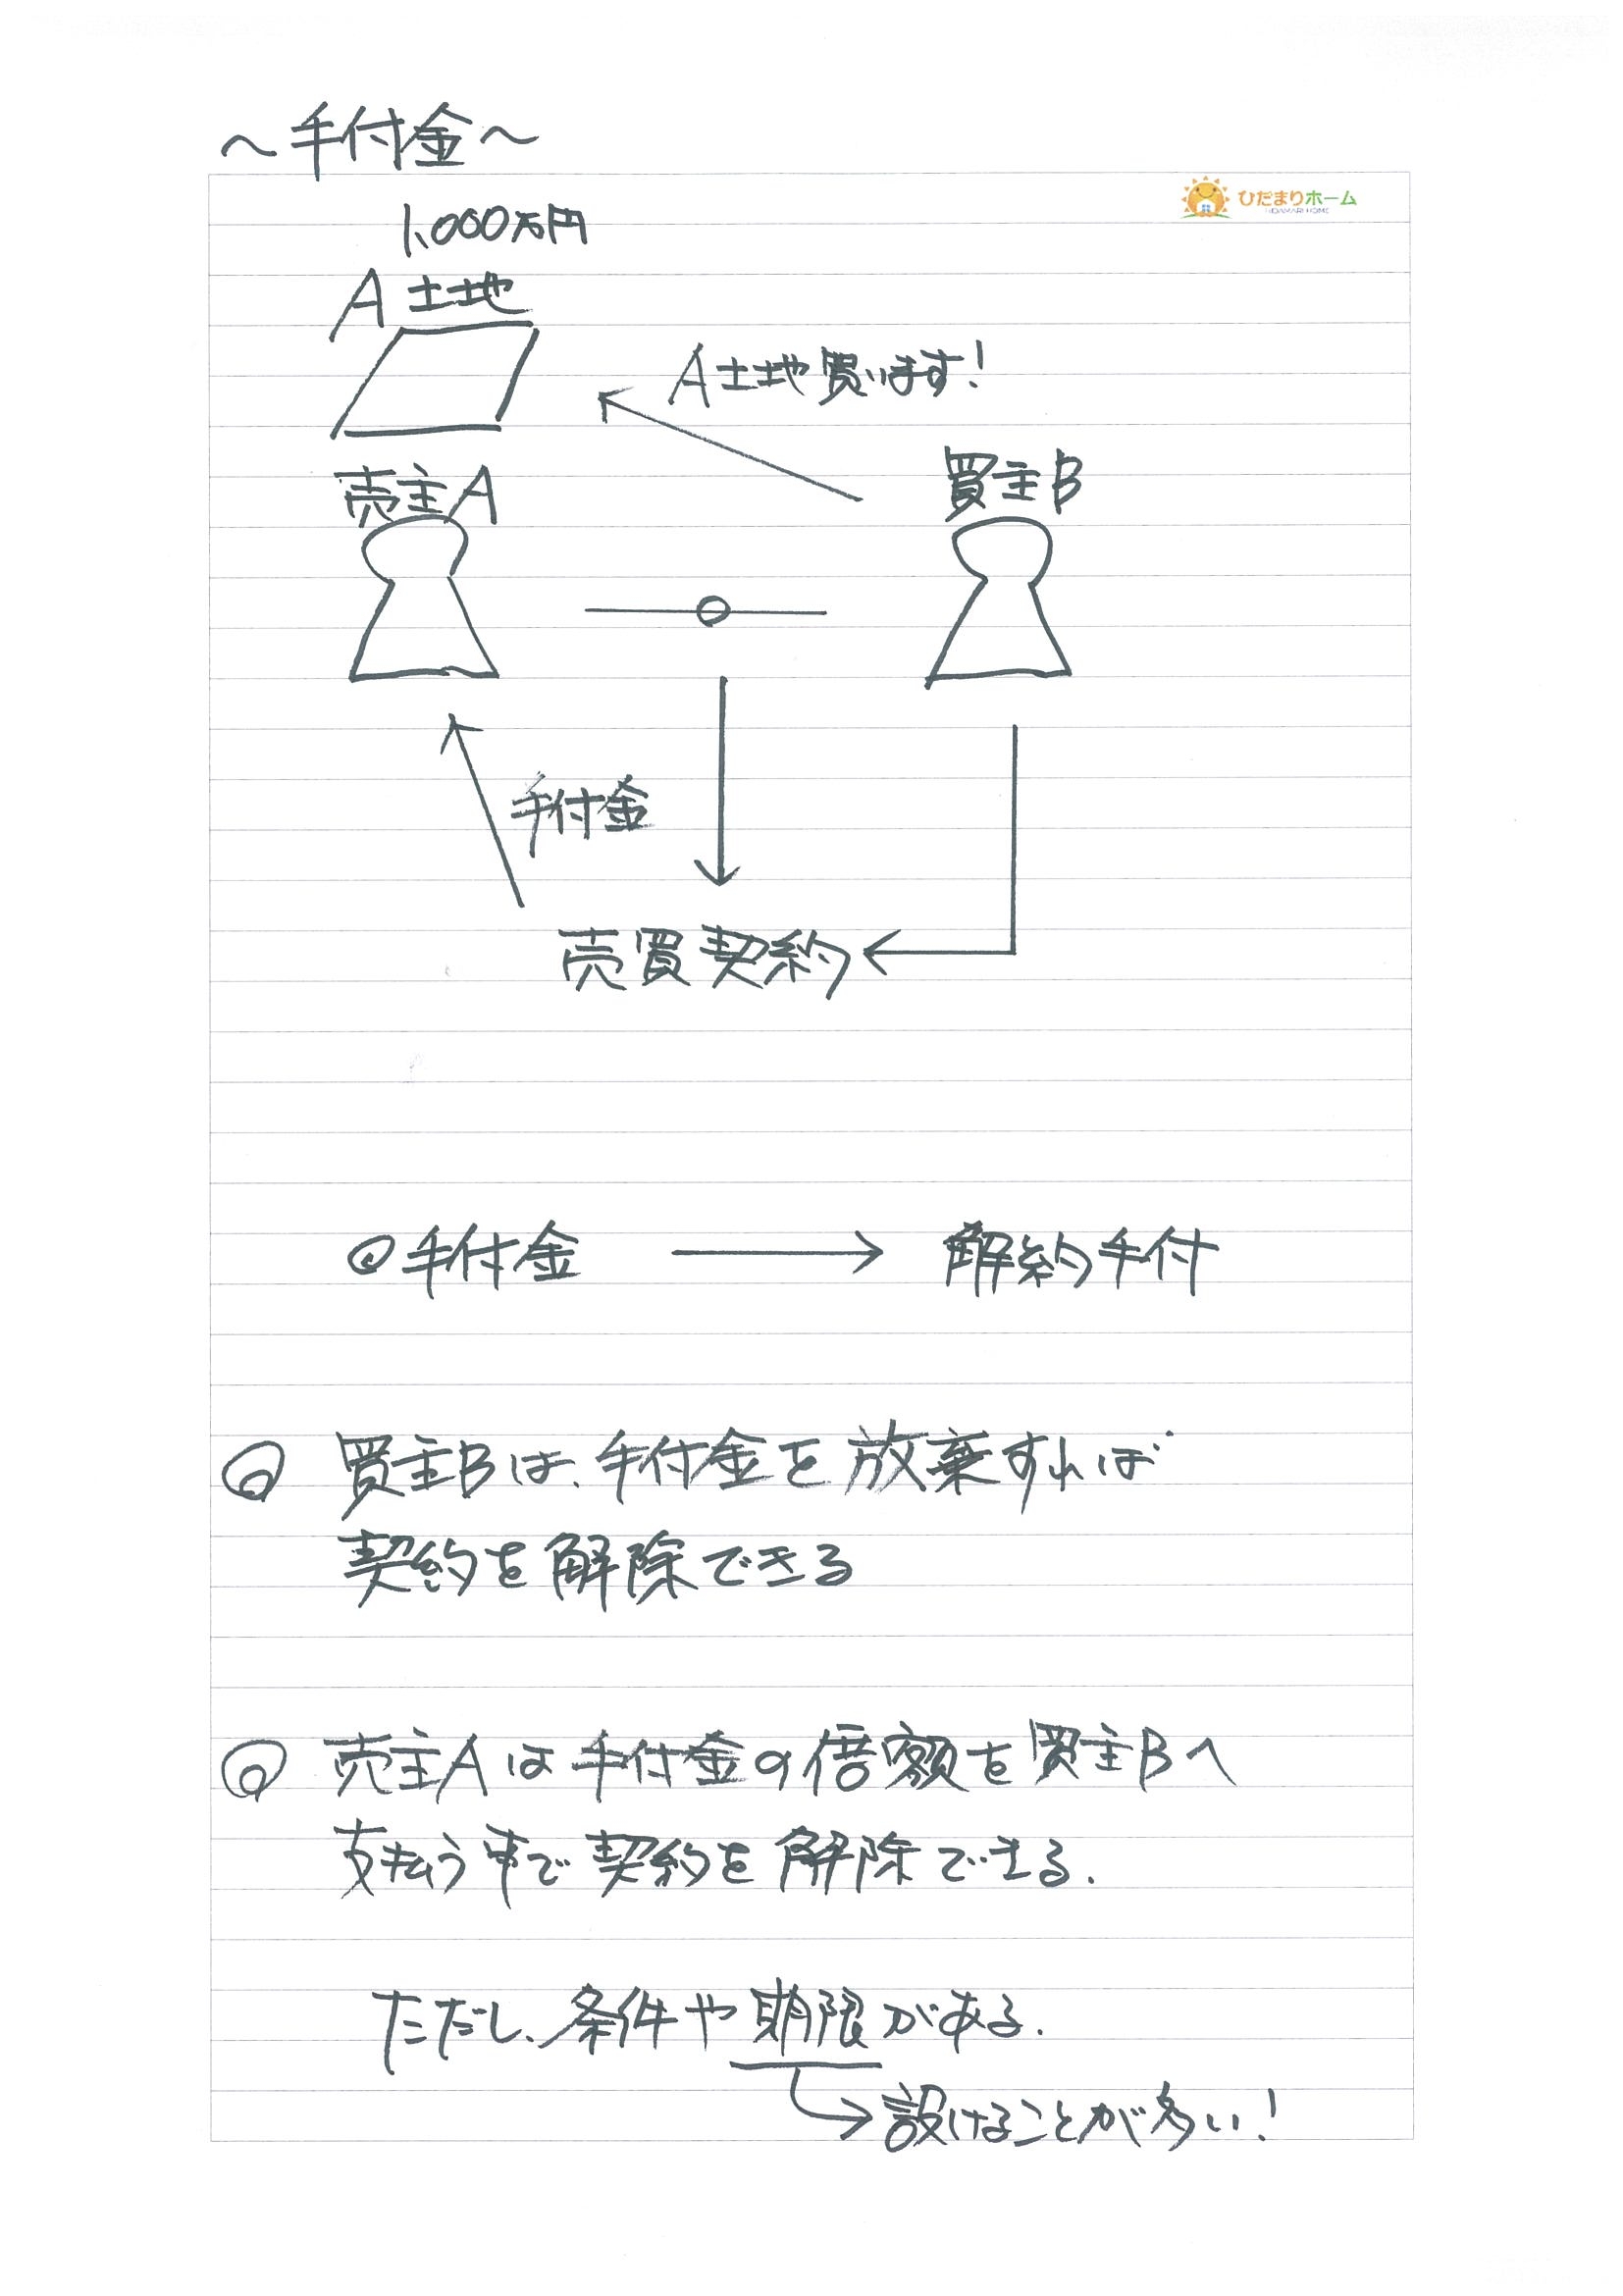 〜手付金〜
ひだまりホーム
HIDAMARI HOME
1,000万円
A土地
A土地買います!
売主A
買主B
手付金
売買契約
◎手付金 → 解約手付
◎ 買主Bは、手付金を放棄すれば
契約を解除できる
◎ 売主Aは手付金の倍額を買主Bへ
支払う事で契約を解除できる.
ただし、条件や期限がある.
→設けることが多い!